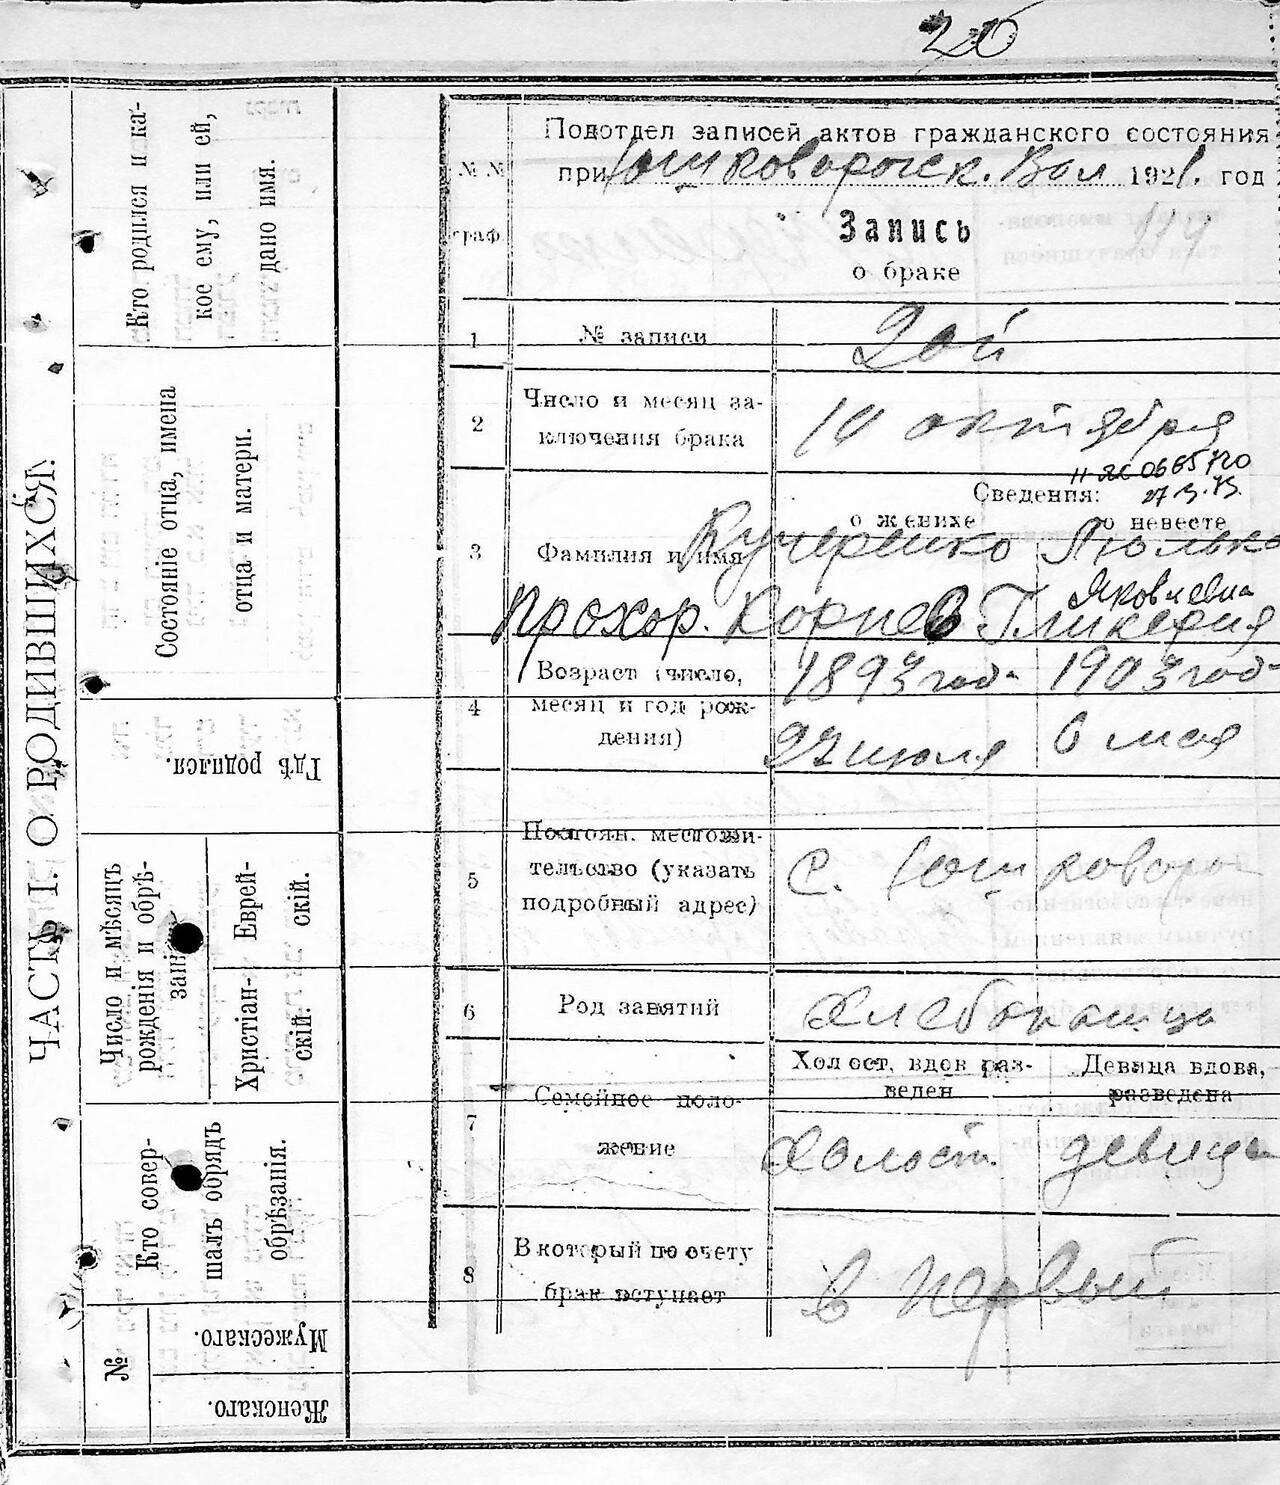 20
ЧАСТЬ I. О РОДИВШИХСЯ.
Кто родился и ка-
кое ему, или ей,
дано имя.
Состояніе отца, имена
отца и матери.
Гдѣ родился.
Число и мѣсяцъ
рожденія и обрѣ-
занія
Еврей-
скій.
Христіан-
скій.
Кто совер-
шалъ обрядъ
обрѣзанія.
№
Мужескаго.
Женскаго.
Подотдел записей актов гражданского состояния
при Вол 1921. год
№№
граф.
Запись
о браке
1 № записи 20й
2 Число и месяц за-
ключения брака
октября
Сведения:
о женихе о невесте
3 Фамилия и имя Кучеренко Люлька
Яковлевна
Прохор. Корнев Гликерия
4 Возраст (число,
месяц и год рож-
дения)
1893 года 1903 года
27 июля 6 мая
5 Постоян. местожи-
тельство (указать
подробный адрес)
с.
6 Род занятий
7 Семейное поло-
жение
Холост, вдов раз-
веден
Девица вдова,
разведена
Холост. девица
8 В который по счету
брак вступает
в первый